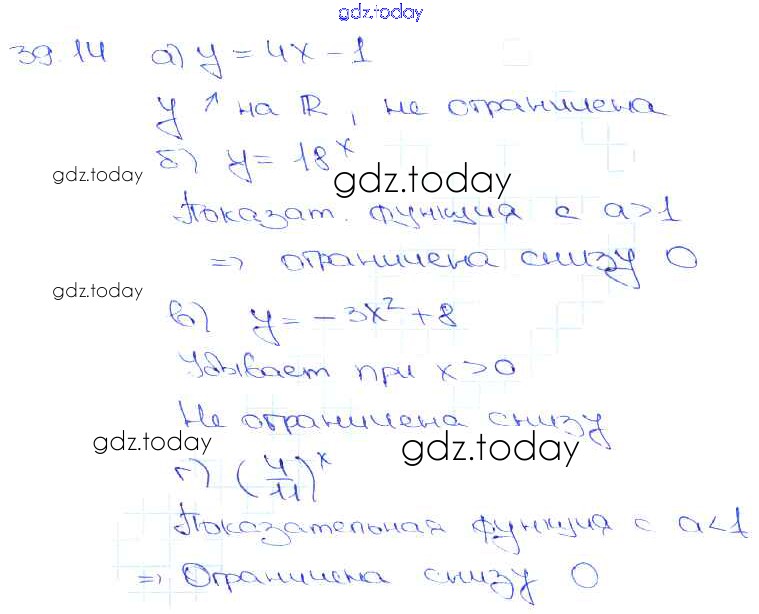 gdz.today
39.14 а) y = 4x - 1
y ↑ на ℝ, не ограничена
б) y = 18^x
gdz.today
gdz.today
Показат. функция с a>1
=> ограничена снизу 0
gdz.today
в) y = -3x² + 8
Убывает при x>0
Не ограничена снизу
gdz.today
gdz.today
г) (4/11)^x
Показательная функция с a<1
=> Ограничена снизу 0